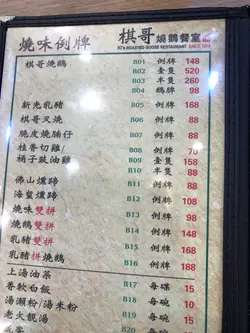 燒味例牌
棋哥 燒鵝餐室
KI'S ROASTED GOOSE RESTAURANT SINCE 1974
棋哥燒鵝 B01 例牌 148
B02 壹隻 520
B03 半隻 260
B04 鵝髀 160
新光乳豬 B05 例牌 168
棋哥叉燒 B06 例牌 88
脆皮燒腩仔 B07 例牌 88
桂香切雞/ B08 例牌 70
桶子豉油雞 B09 壹隻 158
B10 半隻 88
佛山燻蹄 B11 例牌 98
海蜇燻蹄 B12 例牌 98
燒味雙拼 B13 例牌 108
燒鵝雙拼 B14 例牌 158
乳豬雙拼 B15 例牌 168
乳豬拼燒鵝 B16 例牌 188
上湯油菜 B17 每碟 15
香軟白飯 B18 每碗 10
湯瀨粉/湯米粉 B19 每碗 15
老火靚湯 B20 每碗